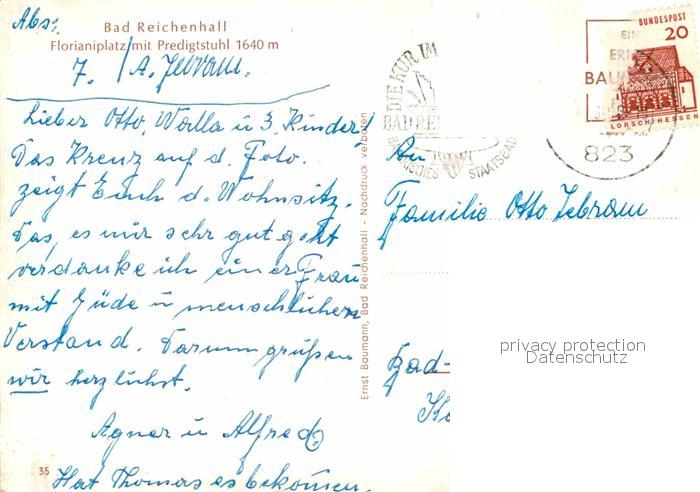 Abs:
Bad Reichenhall
Florianiplatz mit Predigtstuhl 1640 m
7. / A. Jebram.
Lieber Otto, Walla u 3. Kinder
Das Kreuz auf d. Foto.
zeigt Euch d. Wohnsitz.
Das, es mir sehr gut geht
verdanke ich einer Frau
mit Güde u menschlichen
Verstand. Darum grüßen
wir herzlichst.
Agnes u Alfred
35
Hat Thomas es bekommen.
Ernst Baumann, Bad Reichenhall - Nachdruck verboten
DIE KUR IM
BAD REI
BAYERISCHES STAATSBAD
EIN
ERN
BAU
DEUTSCHE BUNDESPOST
20
LORSCH/HESSEN
823
An
Familie Otto Jebram
Bad-
privacy protection
Datenschutz